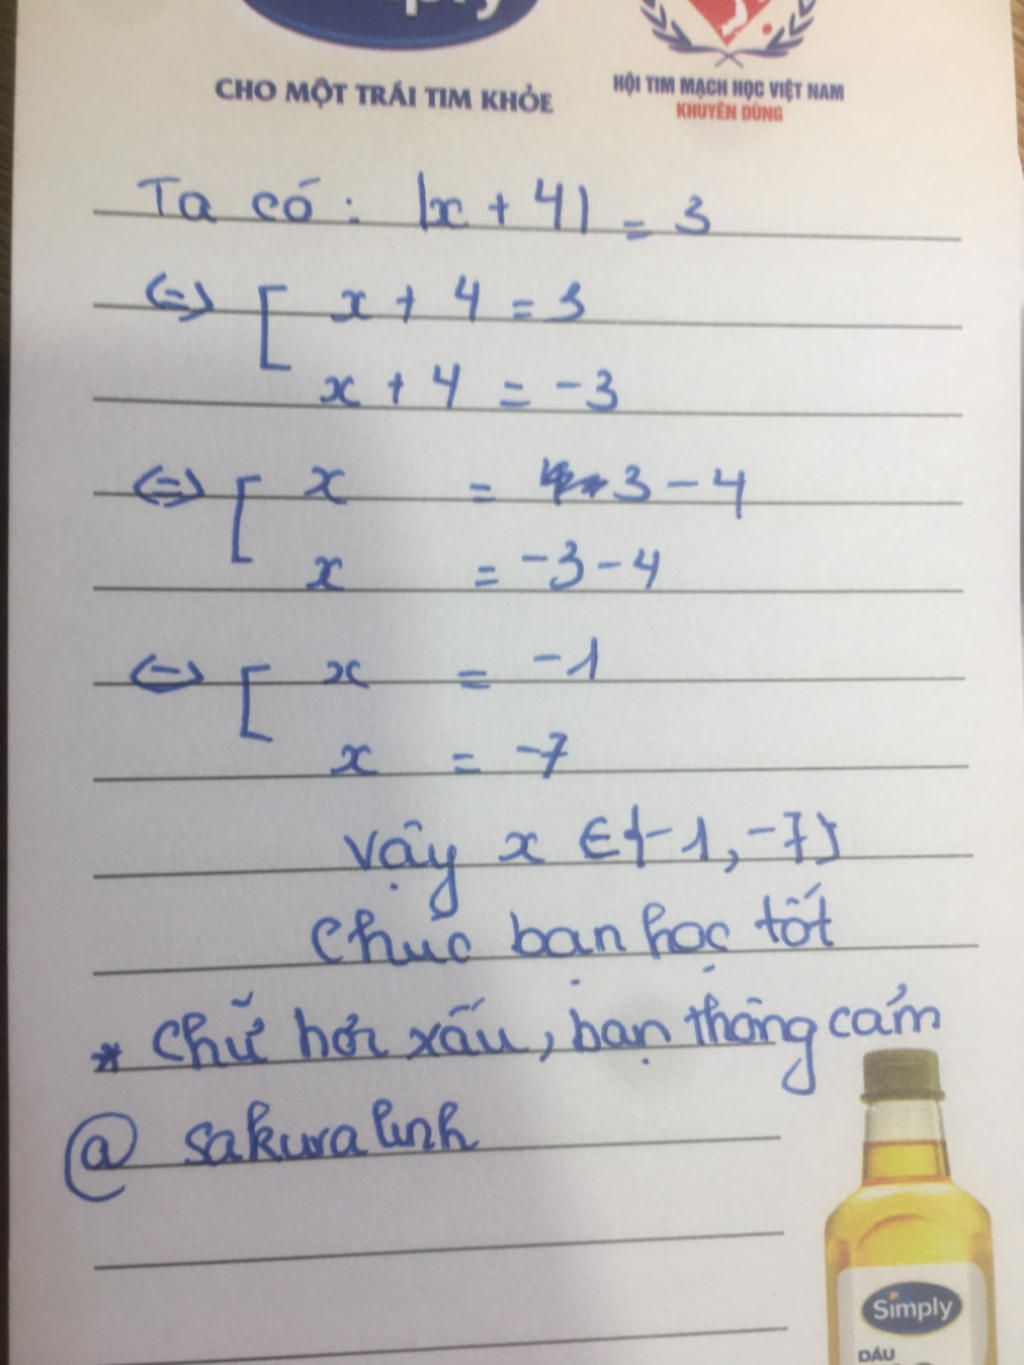 CHO MỘT TRÁI TIM KHỎE
HỘI TIM MẠCH HỌC VIỆT NAM
KHUYÊN DÙNG
Ta có: |x + 4| = 3
<=> [ x + 4 = 3
x + 4 = -3
<=> [ x = 3 - 4
x = -3 - 4
<=> [ x = -1
x = -7
Vậy x ∈ {-1, -7}
Chúc bạn học tốt
* Chữ hơi xấu, bạn thông cảm
@ sakura linh
Simply
DẦU